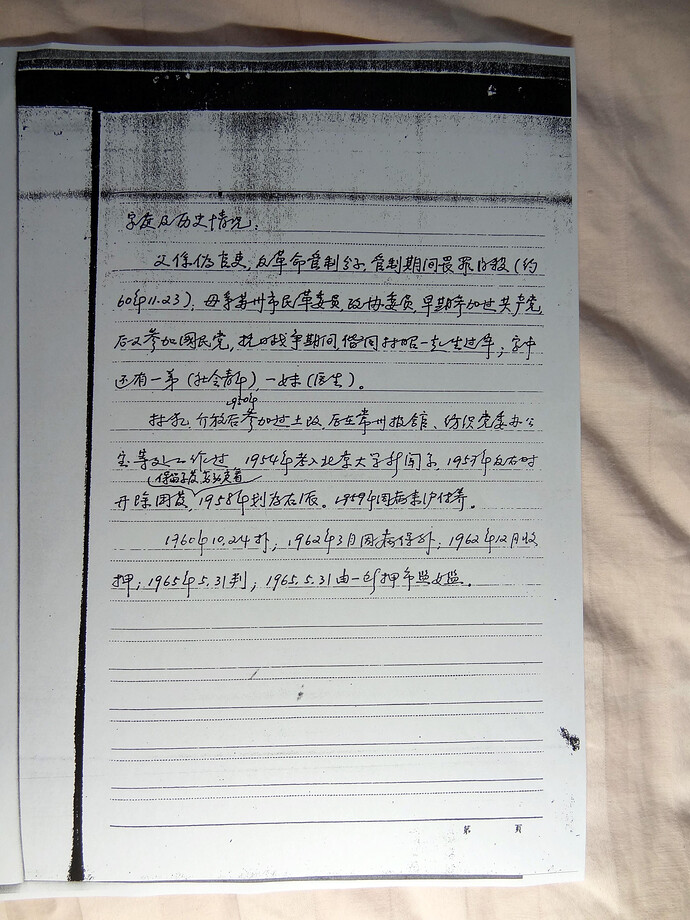 家庭及历史情况：
父系伪官吏，反革命管制分子，管制期间畏罪自杀（约
60年11.23）。母系苏州市民革委员，政协委员，早期参加过共产党，
后又参加国民党，抗日战争期间，偕同 一起生过年；家中
还有一弟（社会青年）一妹（医生）。
1950年
林犯，介放后参加过土改，后在常州报馆、纺织党委办公
室等处工作过，1954年考入北京大学新闻系，1957年反右时
（保留 察看
开除团籍，1958年划为右派。1959年因病来沪休养。
1960年10.24扑；1962年3月因病保外；1962年12月收
押；1965年5.31判；1965.5.31由一所押市监女监。
第 页